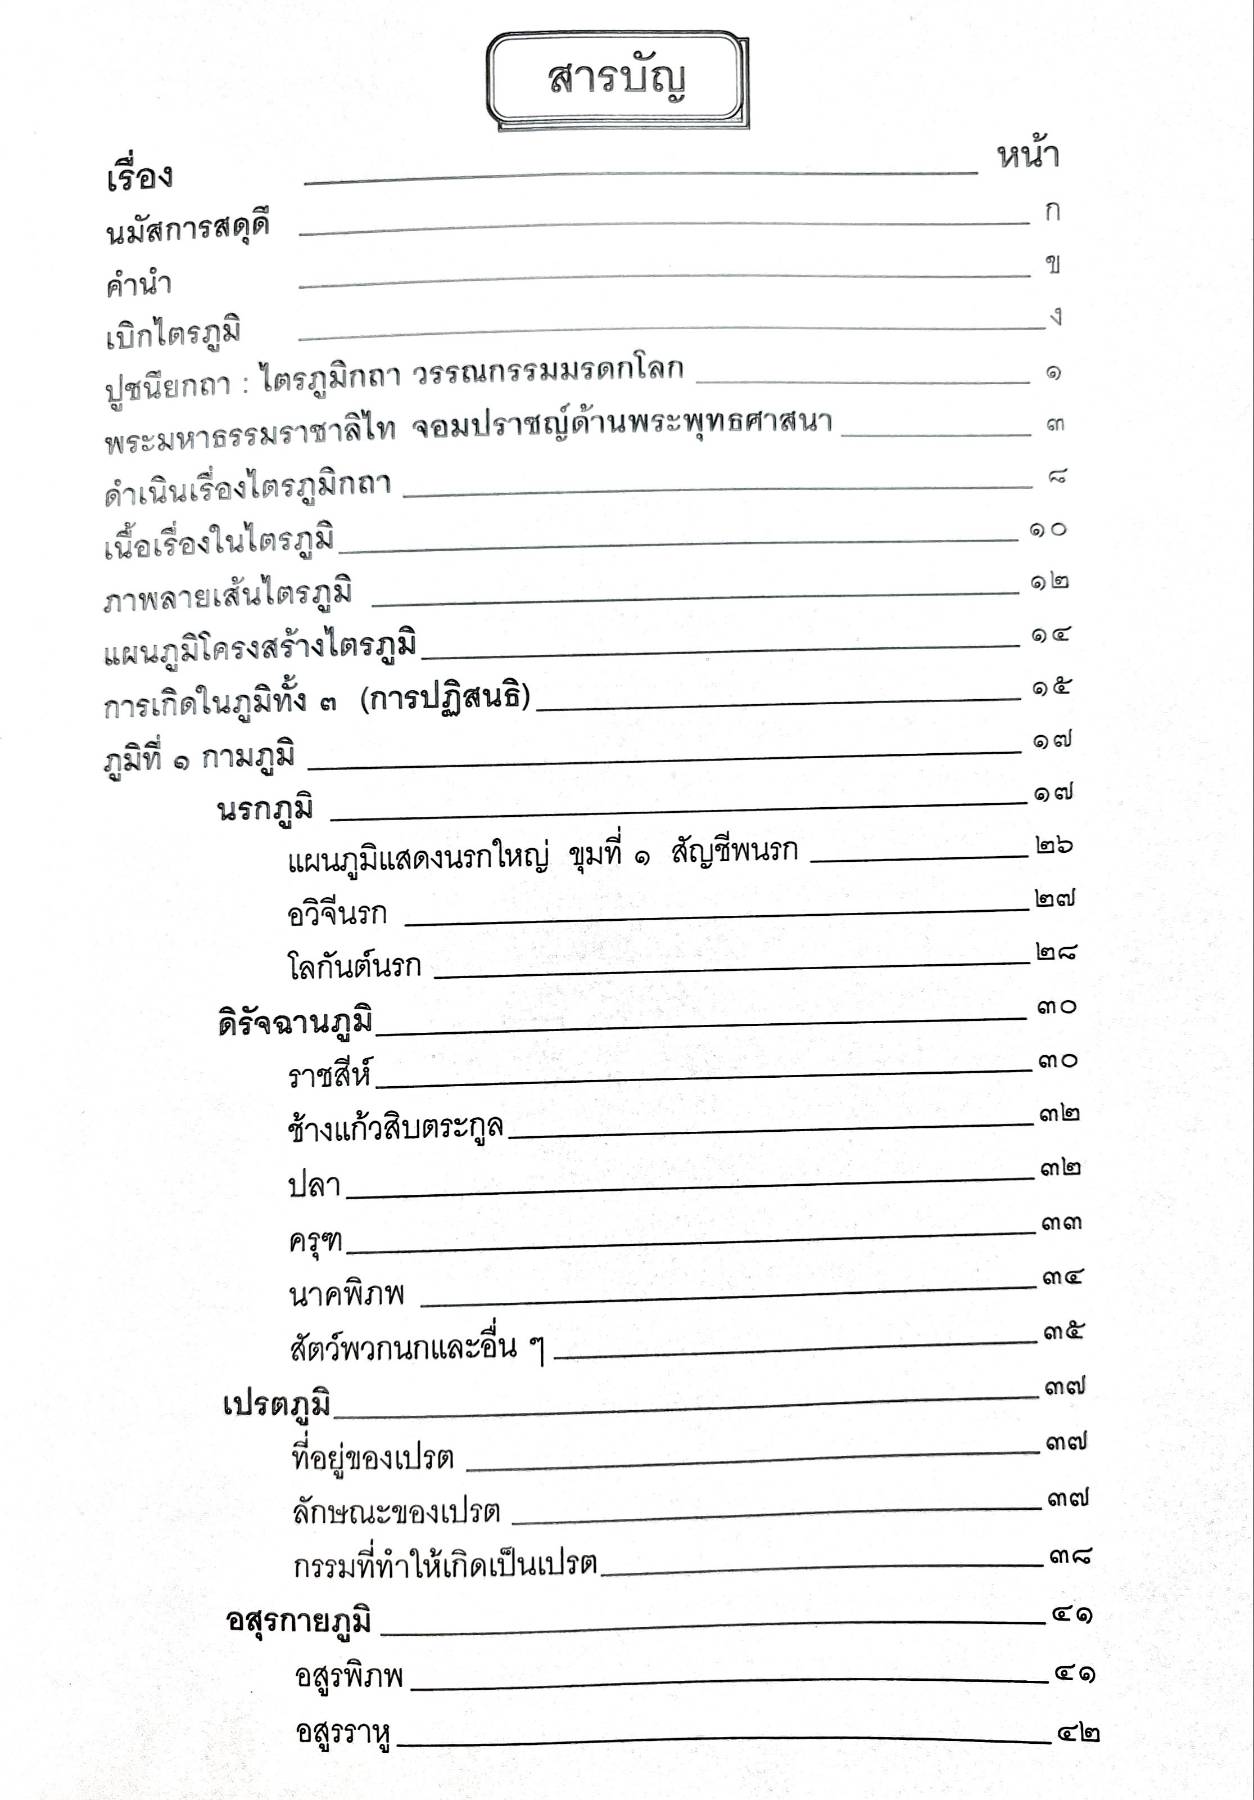 สารบัญ
เรื่อง หน้า
นมัสการสดุดี ก
คำนำ ข
เบิกไตรภูมิ ง
ปูชนียกถา : ไตรภูมิกถา วรรณกรรมมรดกโลก ๑
พระมหาธรรมราชาลิไท จอมปราชญ์ด้านพระพุทธศาสนา ๓
ดำเนินเรื่องไตรภูมิกถา ๘
เนื้อเรื่องในไตรภูมิ ๑๐
ภาพลายเส้นไตรภูมิ ๑๒
แผนภูมิโครงสร้างไตรภูมิ ๑๔
การเกิดในภูมิทั้ง ๓ (การปฏิสนธิ) ๑๕
ภูมิที่ ๑ กามภูมิ ๑๗
นรกภูมิ ๑๗
แผนภูมิแสดงนรกใหญ่ ขุมที่ ๑ สัญชีพนรก ๒๖
อวิจีนรก ๒๗
โลกันต์นรก ๒๘
ดิรัจฉานภูมิ ๓๐
ราชสีห์ ๓๐
ช้างแก้วสิบตระกูล ๓๒
ปลา ๓๒
ครุฑ ๓๓
นาคพิภพ ๓๔
สัตว์พวกนกและอื่น ๆ ๓๕
เปรตภูมิ ๓๗
ที่อยู่ของเปรต ๓๗
ลักษณะของเปรต ๓๗
กรรมที่ทำให้เกิดเป็นเปรต ๓๘
อสุรกายภูมิ ๔๑
อสูรพิภพ ๔๑
อสูรราหู ๔๒